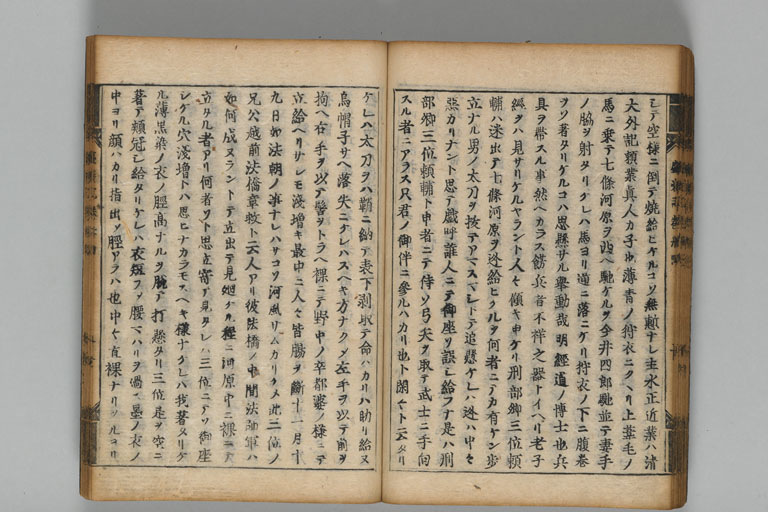 シテ空様ニ倒テ焼給ヒケルコソ無慙ナレ主水正近業ハ清
大外記頼業真人カ子也薄青ノ狩衣ニクヽリ上葦毛ノ
馬ニ乗テ七條河原ヲ西ヘ馳ケルヲ今井四郎馳並テ妻手
ノ脇ヲ射タリケレハ馬ヨリ逆ニ落ニケリ狩衣ノ下ニ腹巻
ヲソ著タリケルコハ思縣サル挙動哉明經道ノ博士也兵
具ヲ帯スル事然ヘカラス餝兵者不祥之器トイヘリ老子
經ヲハ見サリケルヤラント人々傾キ申ケリ刑部卿三位頼
輔ハ迷出テ七條河原ヲ迯給ヒケルヲ何者ニテカ有ケン歩
立ナル男ノ太刀ヲ抜テアマスマシトテ追懸ケレハ迯ハ中々
悪カリナント思テ戯呼誰人ニテ御座ソ誤シ給フナ是ハ刑
部卿三位頼輔ト申者ニテ侍ソ弓矢ヲ取テ武士ニ手向
スル者ニアラス只君ノ御伴ニ參ルハカリ也ト閑々ト云タリ
ケレハ太刀ヲハ鞘ニ納テ衣下剥取テ命ハカリハ助リ給又
烏帽子サヘ落失ニケレハスヘキ方ナクメ左手ヲ以テ前ヲ
拘ヘ右手ヲ以テ髻ヲトラヘ裸ニテ野中ノ卒都婆ノ様ニテ
立給ヘリサレモ淺増キ最中ニ人々皆膓ヲ斷十一月十
九日ノ法朝ノ事ナレハサコソ河風リムカリケメ此三位ノ
兄公越前法橋章救ト云人アリ彼法橋ノ中間法師軍ハ
如何成ヌラントテ立出テ見廻ケル程ニ河原中ニ裸ニテ
立タル者アリ何者ソト思立寄テ見タレハ三位ニテソ御座
シケル穴淺増トハ思ヒナカラモスヘキ様ナケレハ我著タリケ
ル薄黒染ノ衣ノ脛高ナルヲ脱テ打懸タリ三位是ヲ空ニ
著テ頬冠シ給タリケレハ衣短フメ腰マハリヲ過ス墨ノ衣ノ
中ヨリ顔ハカリ指出ソ脛アラハ也中々直裸ナリツルヨリ